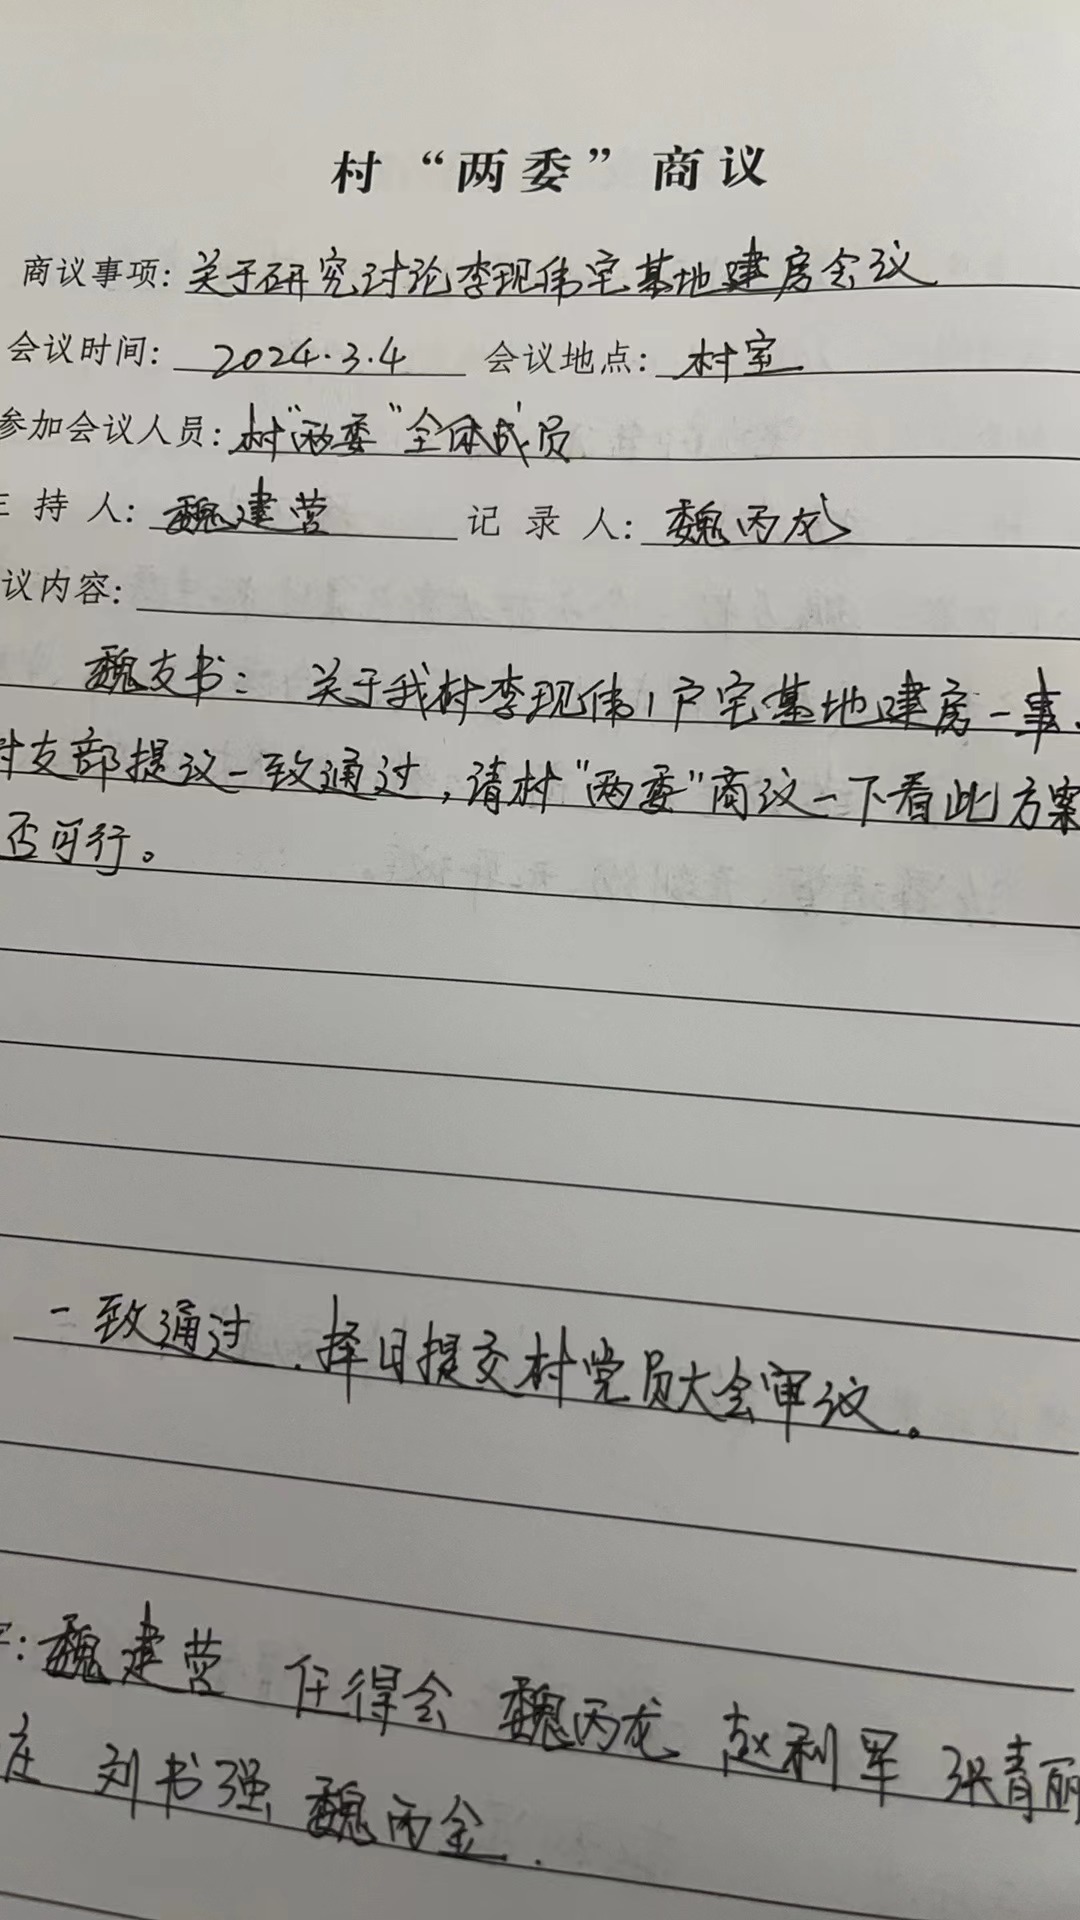 村“两委”商议
商议事项：关于研究讨论李现伟宅基地建房会议
会议时间：2024.3.4 会议地点：村室
参加会议人员：村“两委”全体成员
主持人：魏建营 记录人：魏丙龙
议内容：
魏支书：关于我村李现伟1户宅基地建房一事，
村支部提议一致通过，请村“两委”商议一下看此方案
否可行。
一致通过．择日提交村党员大会审议。
字：魏建营 任得会 魏丙龙 赵利军 张青丽
庄 刘书强 魏丙金．